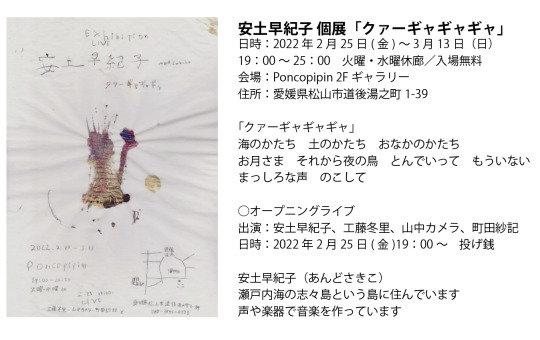 Exhibition
LIVE
安土早紀子
クァーギャギャギャ
2022. 2.25 - 3.13
Poncopipin
19:00 - 25:00
火曜・水曜 休廊
LIVE
安土早紀子 個展「クァーギャギャギャ」
日時：2022 年 2 月 25 日 ( 金 ) 〜 3 月 13 日（日）
19：00 〜 25：00　火曜・水曜休廊／入場無料
会場：Poncopipin 2F ギャラリー
住所：愛媛県松山市道後湯之町 1-39
「クァーギャギャギャ」
海のかたち　土のかたち　おなかのかたち
お月さま　それから夜の鳥　とんでいって　もういない
まっしろな声　のこして
○オープニングライブ
出演：安土早紀子、工藤冬里、山中カメラ、町田紗記
日時：2022 年 2 月 25 日 ( 金 )19：00 〜　投げ銭
安土早紀子（あんどさきこ）
瀬戸内海の志々島という島に住んでいます
声や楽器で音楽を作っています